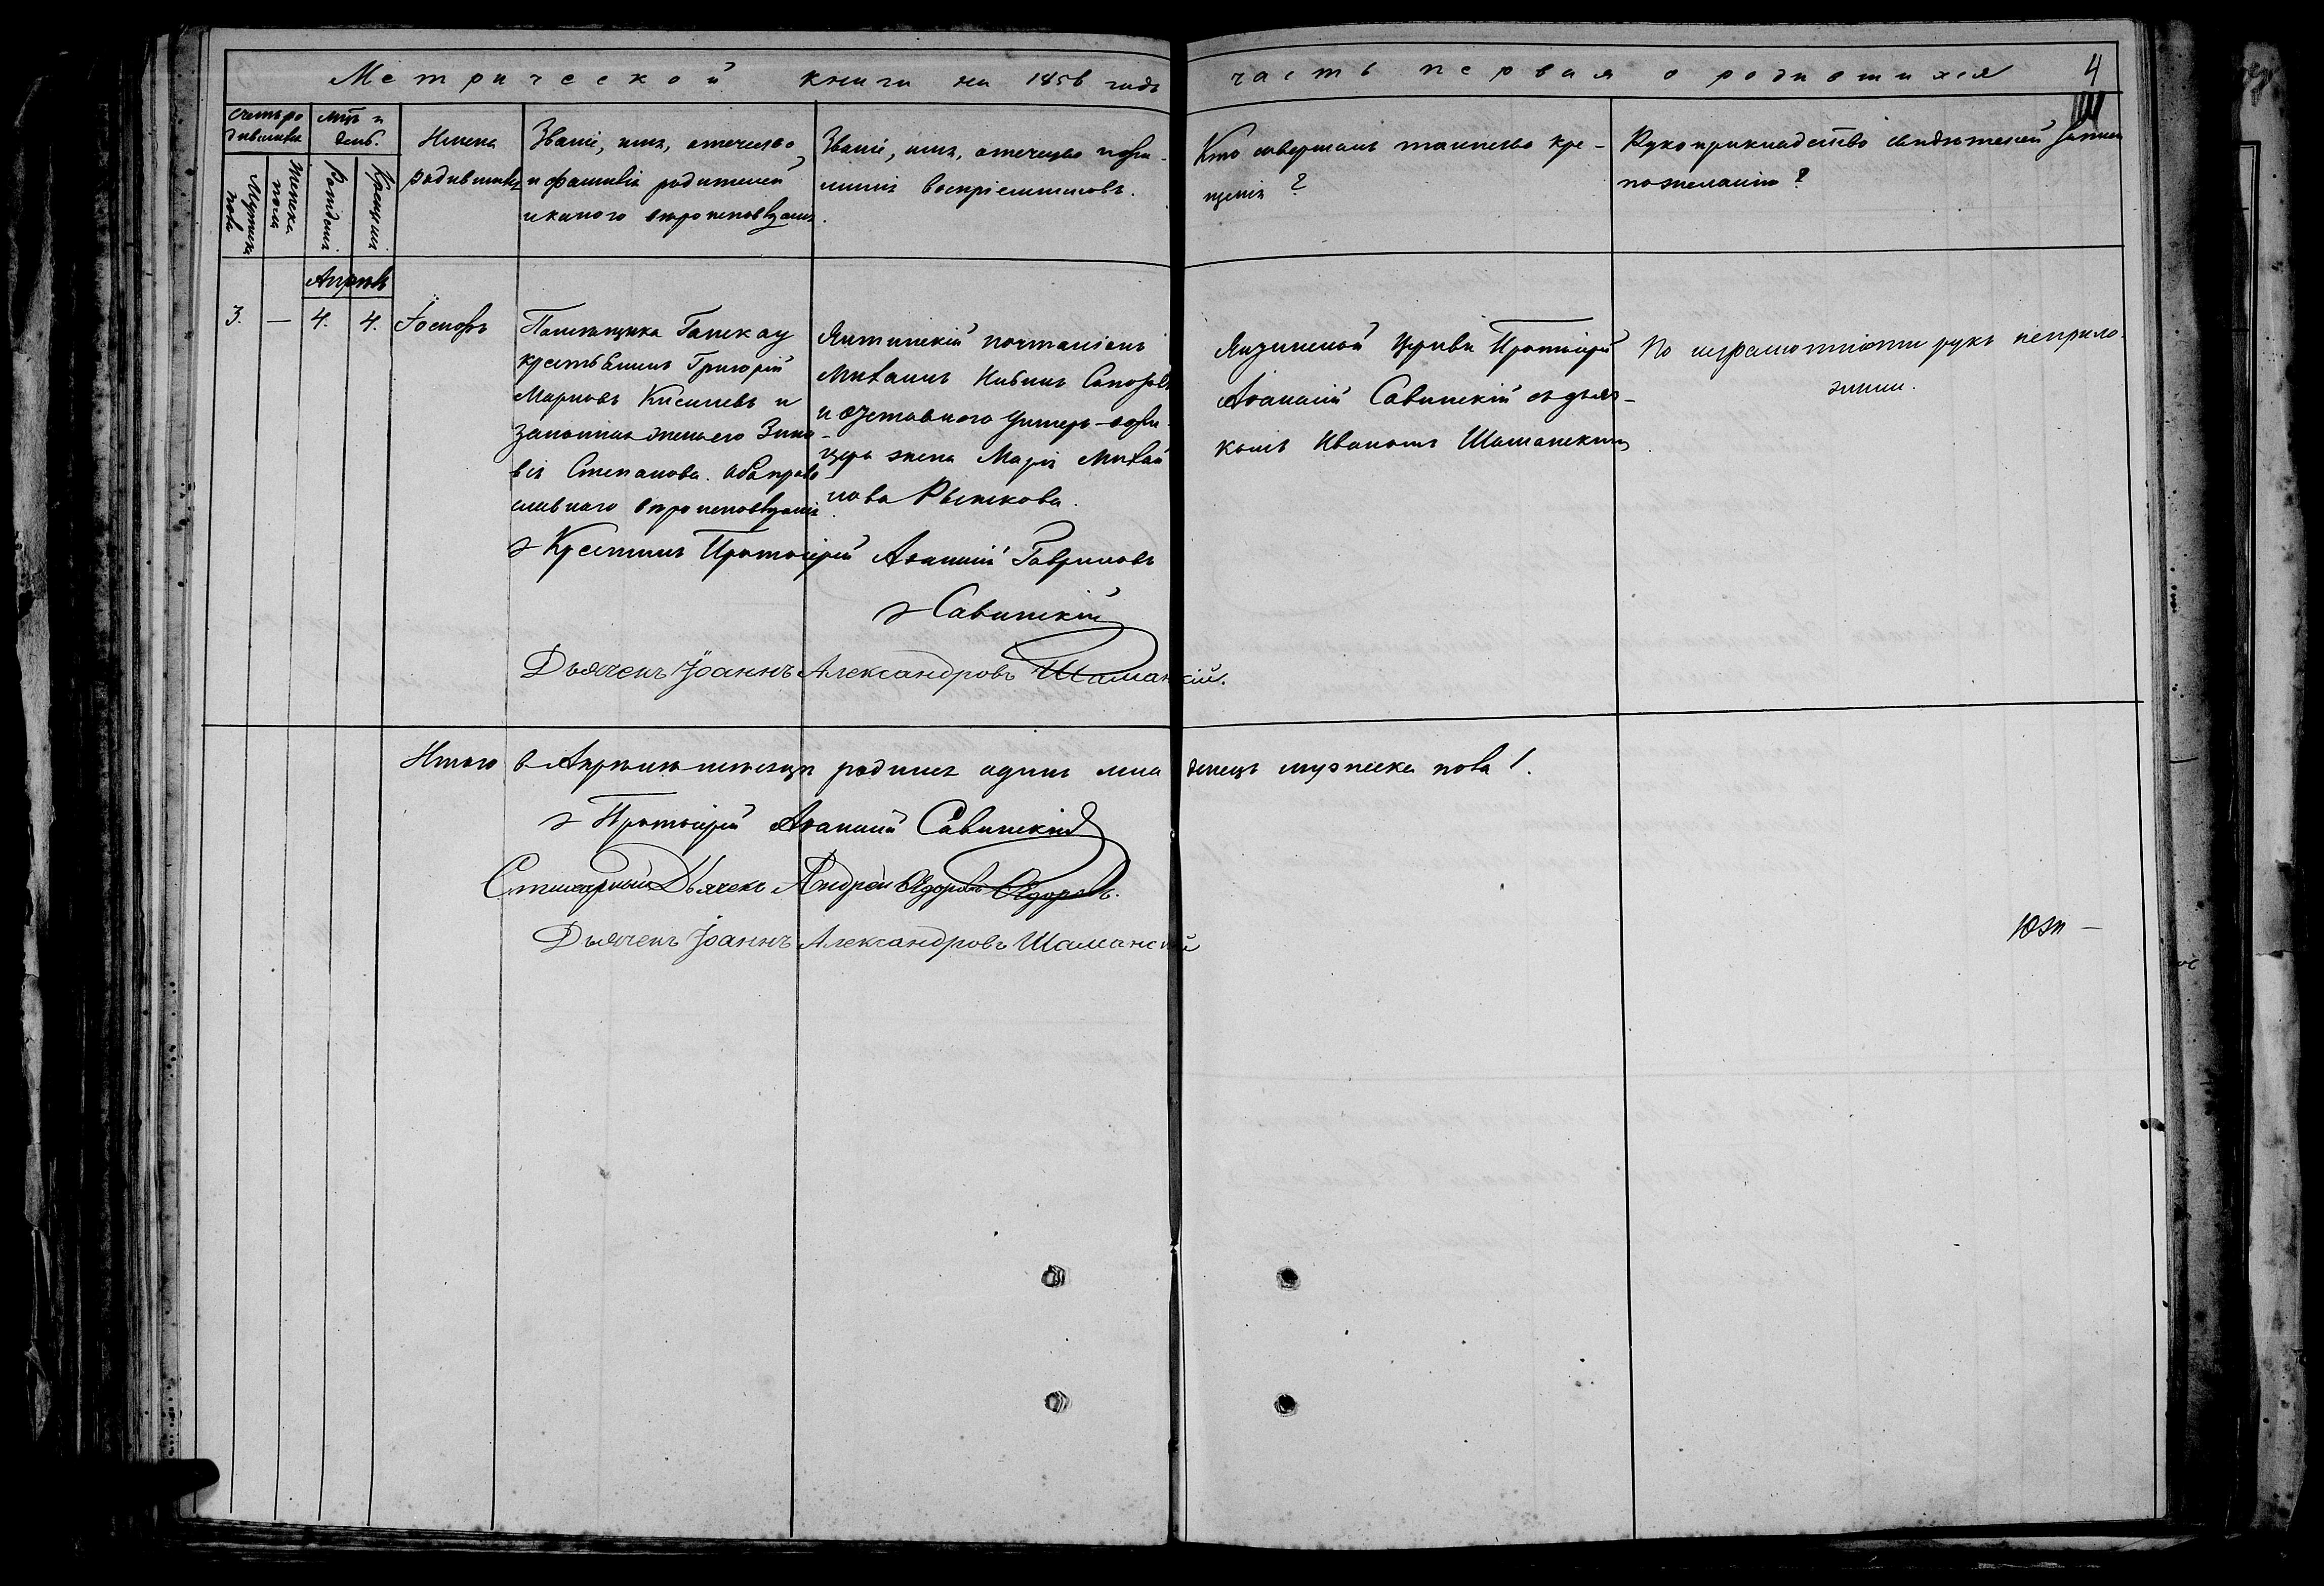 Метрической книги на 1856 годъ часть первая о родившихся 4
Счетъ родившихся
Мужеска пола
Женска пола
Мцъ и день.
Рожденія
Крещенія
Имена родившихся
Званіе, имя, отечество,
и фамилія родителей
и какого вѣроисповѣданія
Званіе, имя, отечество
воспріемниковъ.
Кто совершалъ таинство кре-
щенія?
Рукоприкладство свидѣтелей записи
по желанію?
Апрѣль
3. — 4. 4. Іосифъ
Помѣщика
крестьянинъ Григорій
Марковъ Киселевъ и
законная жена его Зино
вія Степанова. Оба право
славнаго вѣроисповѣданія
Ялтинскій почталіонъ
Михаилъ
и отставного унтеръ-офи-
цера жена Марія Михай
лова Рыжкова.
церкви Протоіерей
Аѳанасій Савинскій съ дьяч-
комъ Иваномъ Шаманскимъ
По неграмотности рукъ неприло-
жили.
Крестилъ Протоіерей Аѳанасій Гавриловъ
Савинскій
Дьячекъ Іоаннъ Александровъ Шаманскій.
Итого в Апрѣлѣ мѣсяцѣ родился одинъ младенецъ мужеска пола 1.
Протоіерей Аѳанасій Савинскій
Стихарный Дьячекъ Андрей Ѳедоровъ Ѳедоровъ.
Дьячекъ Іоаннъ Александровъ Шаманскій